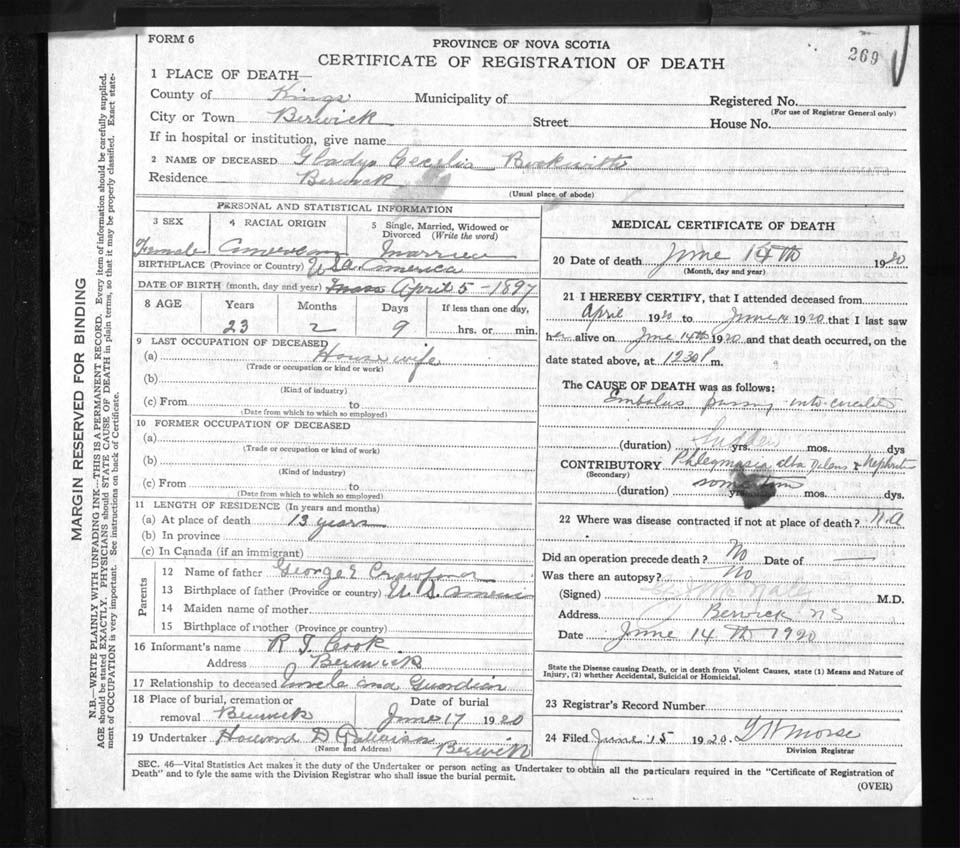 FORM 6
PROVINCE OF NOVA SCOTIA
269
CERTIFICATE OF REGISTRATION OF DEATH
1 PLACE OF DEATH—
County of Kings Municipality of Registered No.
(For use of Registrar General only)
City or Town Berwick Street House No.
If in hospital or institution, give name
2 NAME OF DECEASED Gladys Cecelia
Residence Berwick
(Usual place of abode)
PERSONAL AND STATISTICAL INFORMATION
3 SEX 4 RACIAL ORIGIN 5 Single, Married, Widowed or Divorced (Write the word)
Female American Married
BIRTHPLACE (Province or Country) U S America
DATE OF BIRTH (month, day and year) April 5 - 1897
8 AGE Years Months Days If less than one day,
23 2 9 hrs. or min.
9 LAST OCCUPATION OF DECEASED
(a) House wife
(Trade or occupation or kind or work)
(b)
(Kind of industry)
(c) From to
(Date from which to which so employed)
10 FORMER OCCUPATION OF DECEASED
(a)
(Trade or occupation or kind of work)
(b)
(Kind of industry)
(c) From to
(Date from which to which so employed)
11 LENGTH OF RESIDENCE (In years and months)
(a) At place of death 13 years
(b) In province
(c) In Canada (if an immigrant)
Parents
12 Name of father George Crawford
13 Birthplace of father (Province or country) U.S.
14 Maiden name of mother
15 Birthplace of mother (Province or country)
16 Informant's name R J Cook
Address Berwick
17 Relationship to deceased Uncle and Guardian
18 Place of burial, cremation or removal Berwick
Date of burial June 17 1920
19 Undertaker Howard D Berwick
(Name and Address)
MEDICAL CERTIFICATE OF DEATH
20 Date of death June 14th 1920
(Month, day and year)
21 I HEREBY CERTIFY, that I attended deceased from
April 1920 to June 14 1920 that I last saw
her alive on June 14th 1920 and that death occurred, on the
date stated above, at 1230 P m.
The CAUSE OF DEATH was as follows:
Embolus passing into
(duration) Sudden yrs. mos. dys
CONTRIBUTORY Phlegmasia alba Dolens &
(Secondary)
(duration) some time yrs. mos. dys.
22 Where was disease contracted if not at place of death? N.A
Did an operation precede death? No Date of —
Was there an autopsy? No
(Signed) M.D.
Address Berwick NS
Date June 14th 1920
State the Disease causing Death, or in death from Violent Causes, state (1) Means and Nature of
Injury, (2) whether Accidental, Suicidal or Homicidal.
23 Registrar's Record Number
24 Filed June 15 1920. Morse
Division Registrar
SEC. 46—Vital Statistics Act makes it the duty of the Undertaker or person acting as Undertaker to obtain all the particulars required in the "Certificate of Registration of
Death" and to fyle the same with the Division Registrar who shall issue the burial permit.
(OVER)
MARGIN RESERVED FOR BINDING
N.B.—WRITE PLAINLY WITH UNFADING INK—THIS IS A PERMANENT RECORD. Every item of information should be carefully supplied.
AGE should be stated EXACTLY. PHYSICIANS should STATE CAUSE OF DEATH in plain terms, so that it may be properly classified. Exact state-
ment of OCCUPATION is very important. See instructions on back of Certificate.